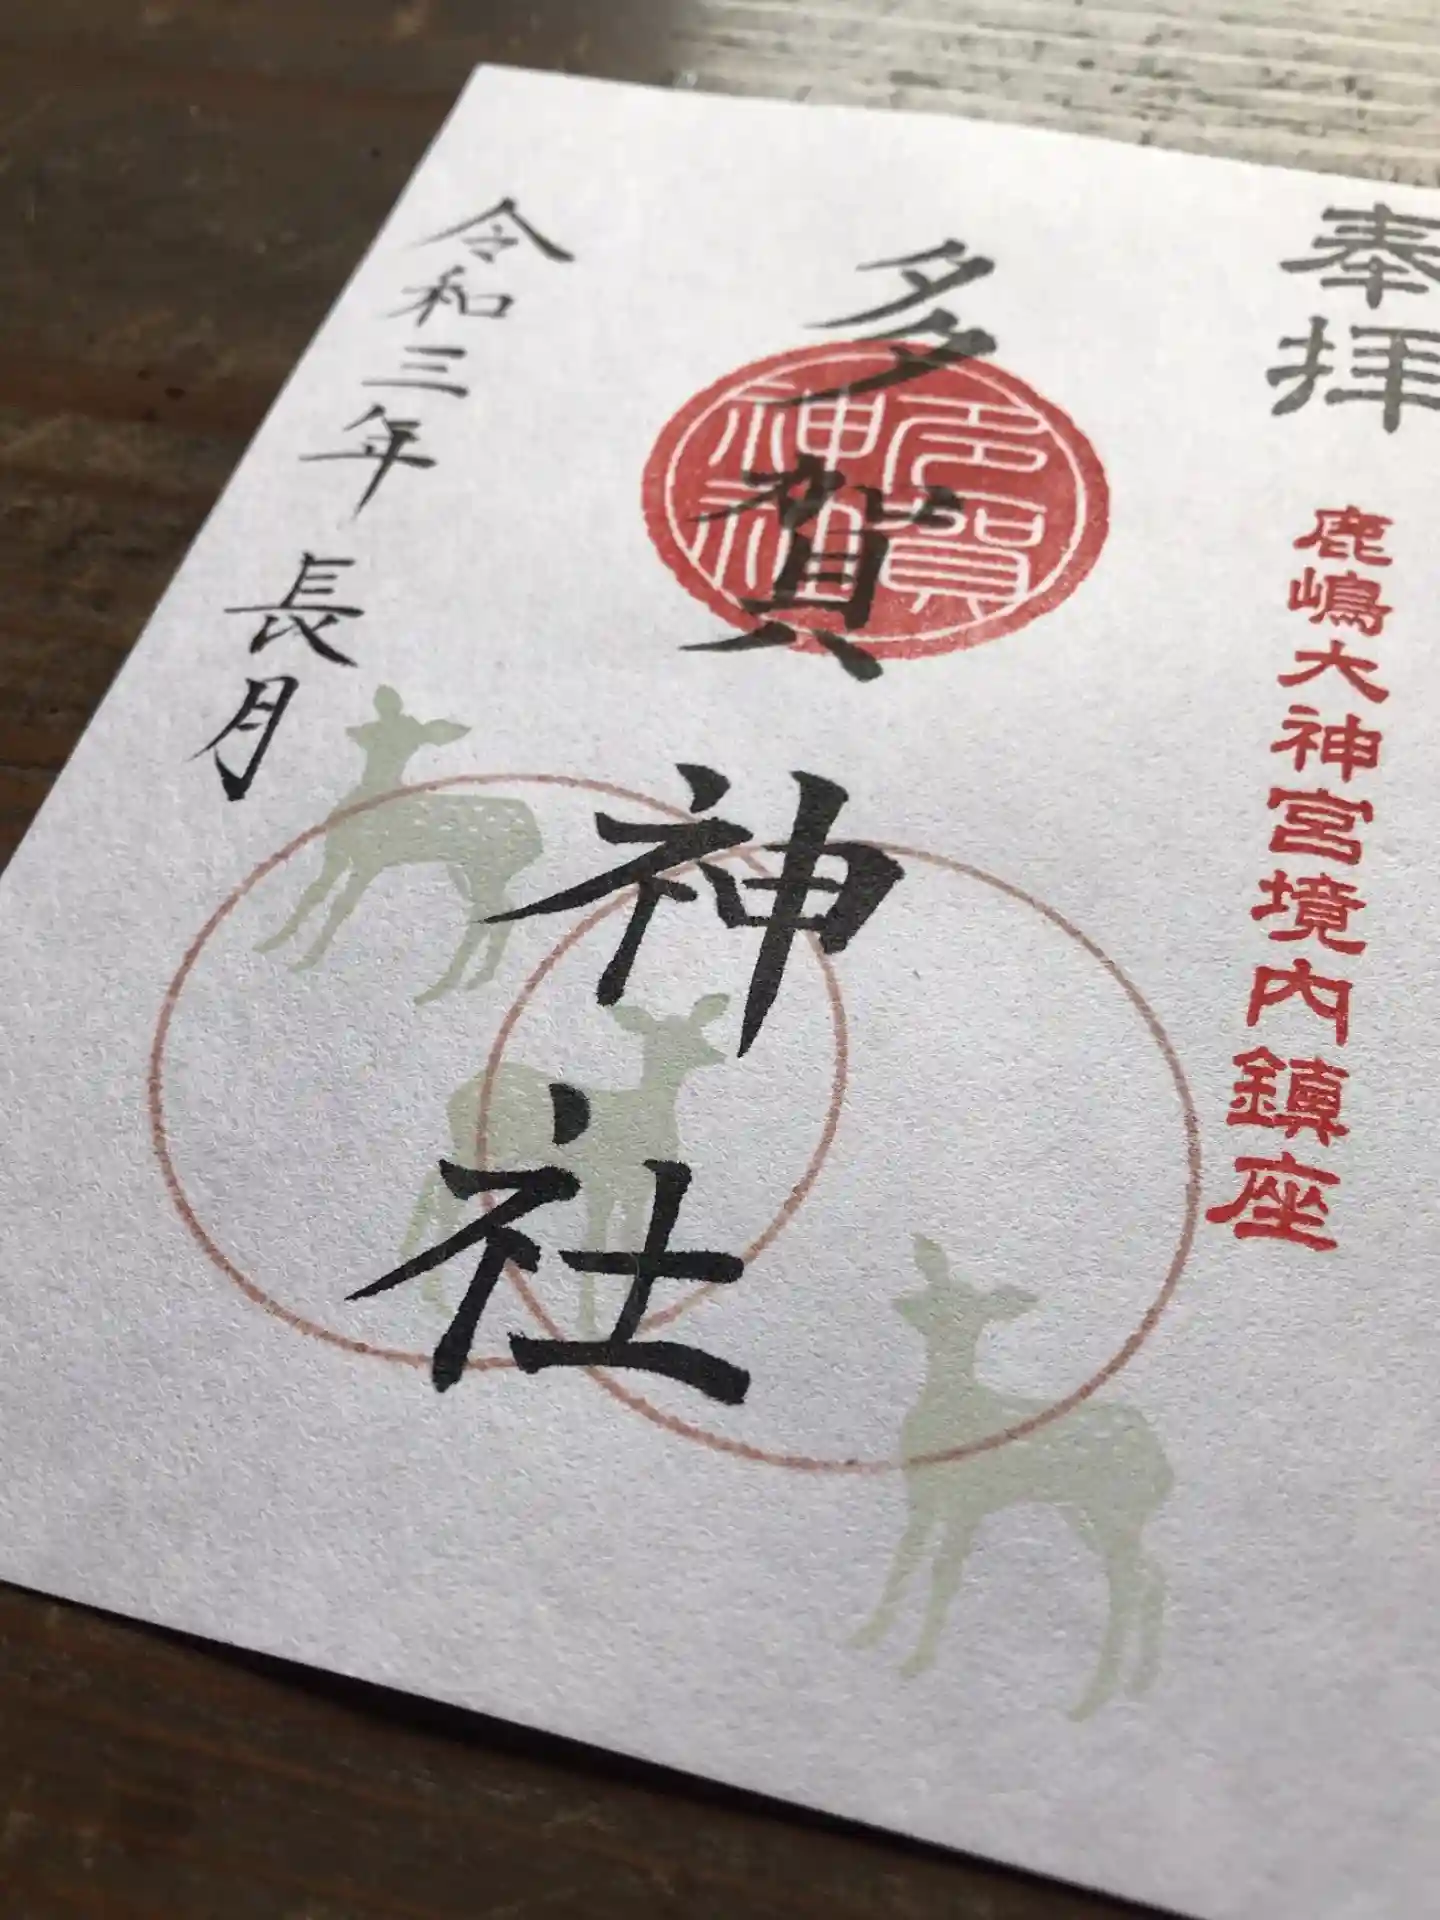 奉拝
鹿嶋大神宮境内鎮座
多賀神社
多賀
神社
令和三年 長月